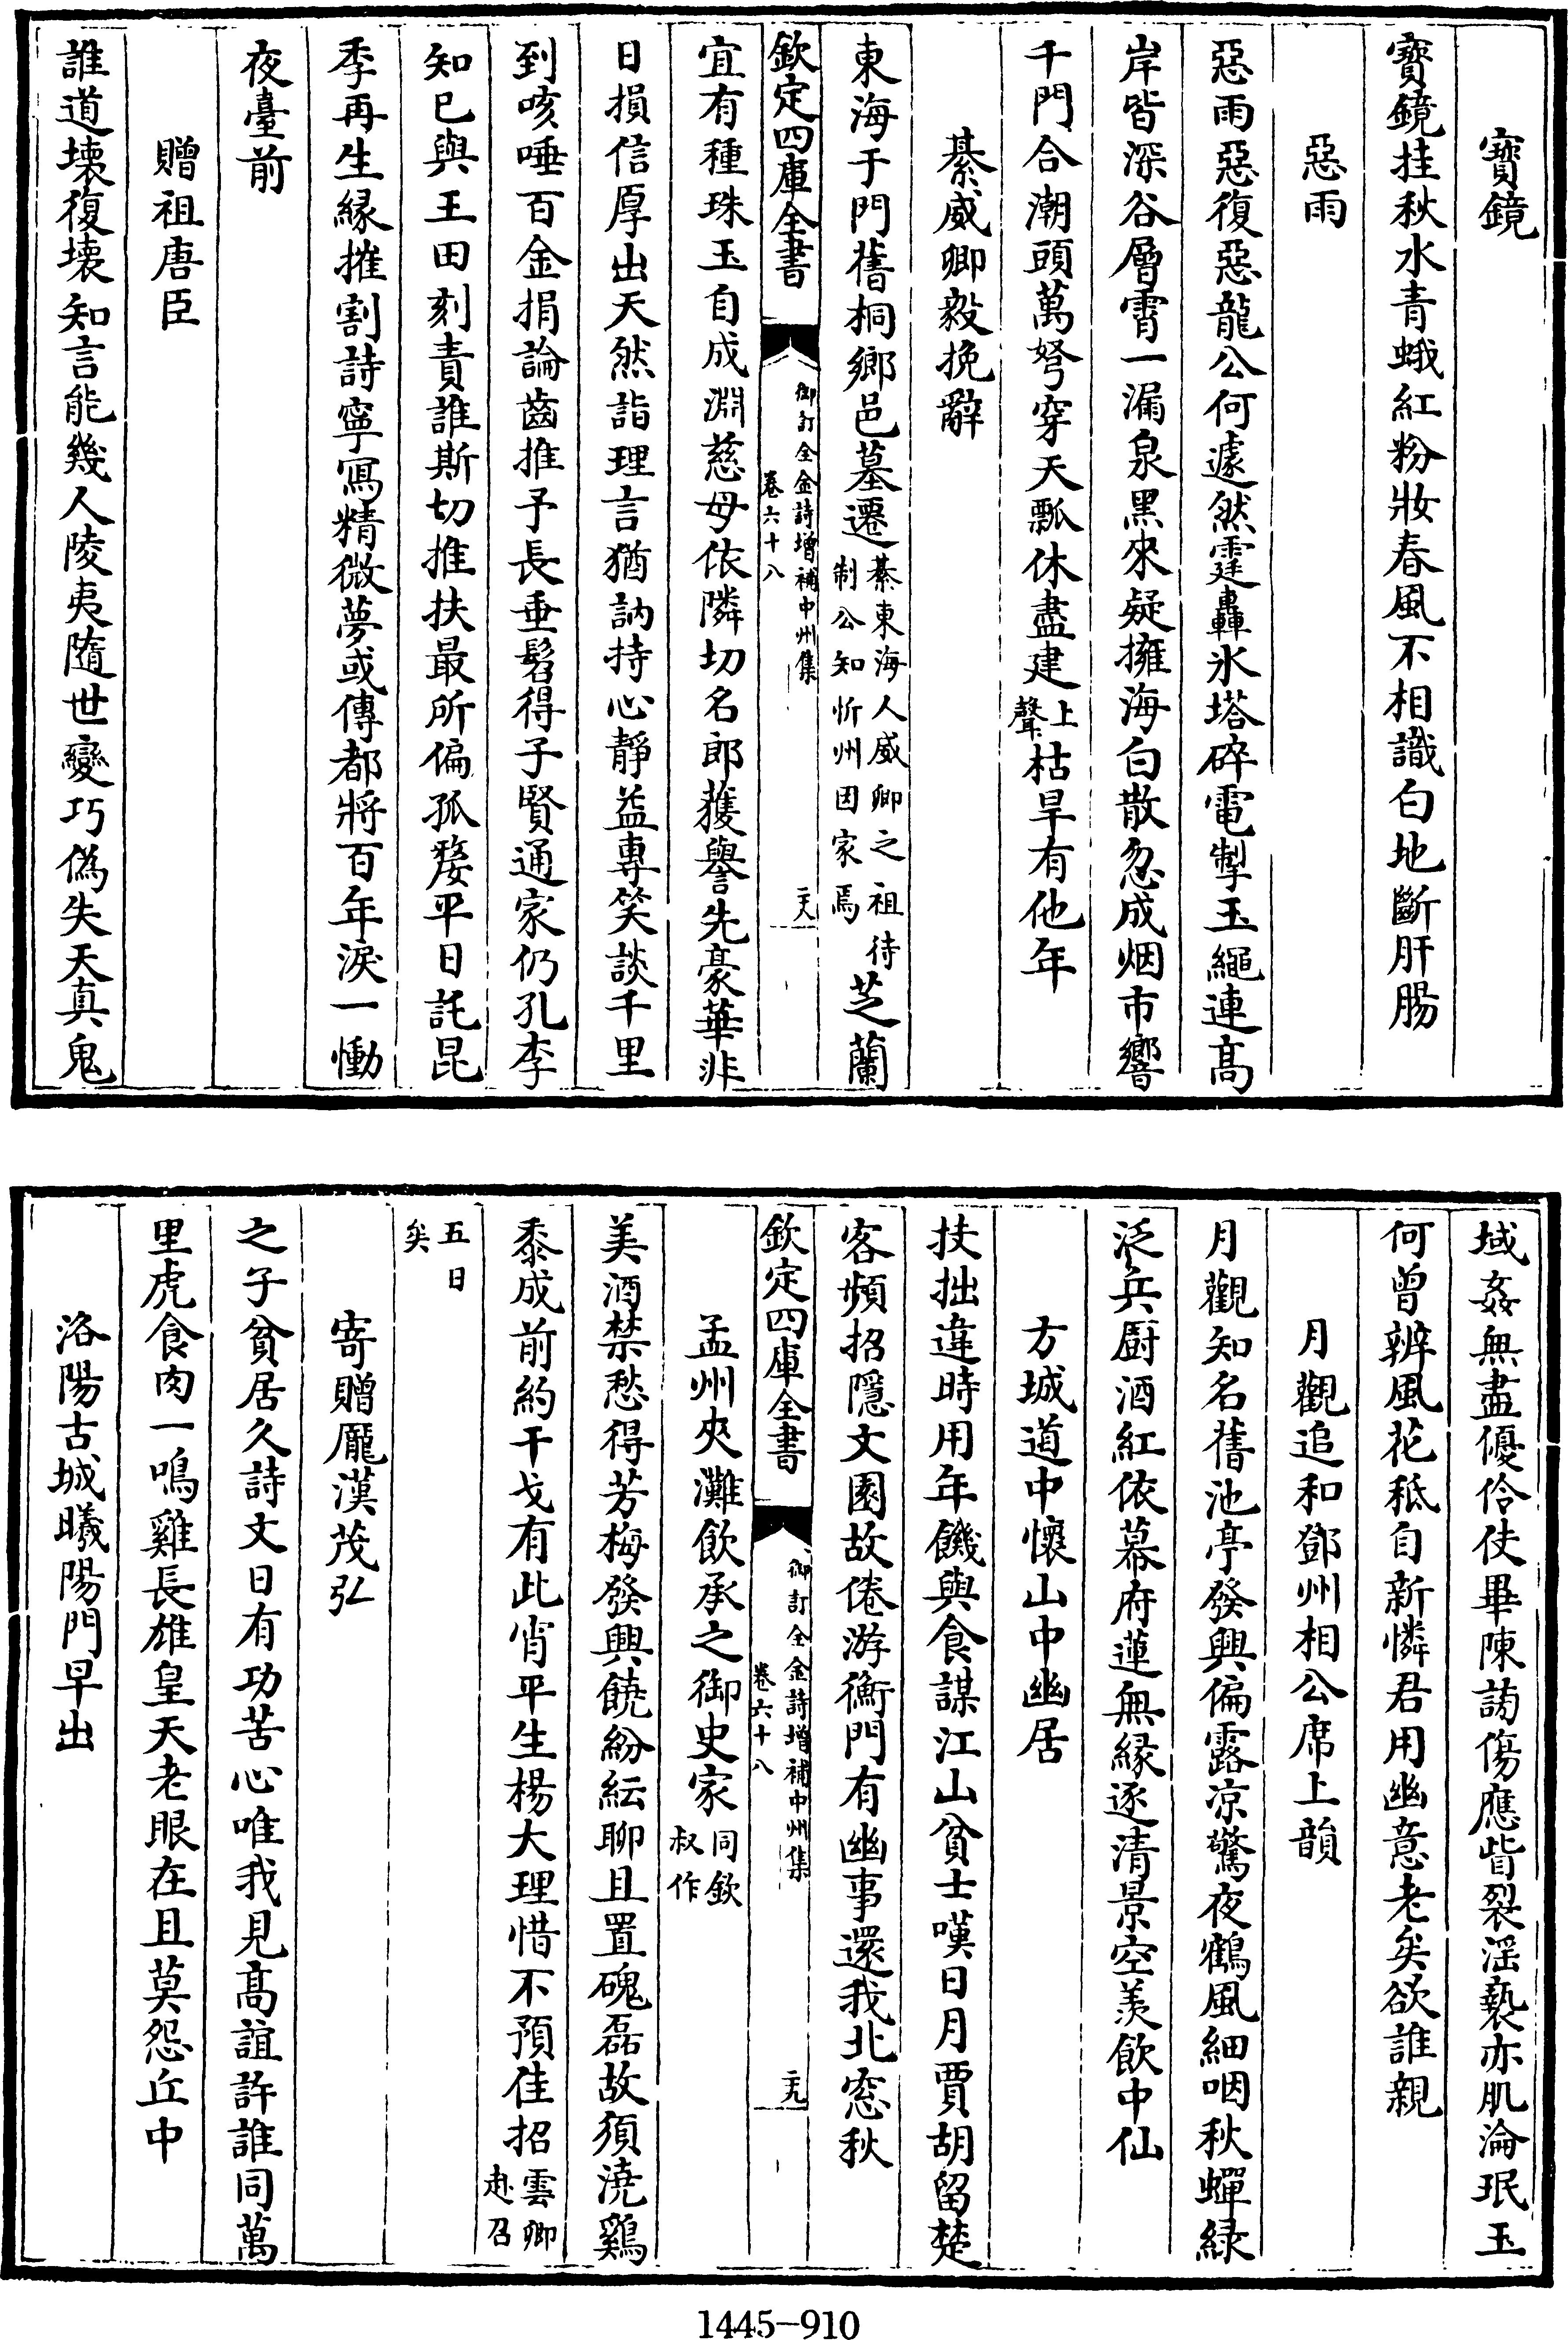 寳鏡
寳鏡挂秋水青蛾紅粉妝春風不相識白地斷肝腸
惡雨
惡雨惡復惡龍公何遽然霆轟氷塔碎電掣玉繩連髙
岸皆深谷層霄一漏泉黑來疑擁海白散忽成烟市響
千門合潮頭萬弩穿天瓢休盡建上聲枯旱有他年
綦威卿毅挽辭
東海于門舊桐鄉邑墓遷綦東海人威卿之祖待制公知忻州因家焉芝蘭
欽定四庫全書
御訂全金詩增補中州集
卷六十八
二十八
宜有種珠玉自成淵慈母依隣切名郎獲譽先豪華非
日損信厚出天然詣理言猶訥持心靜益專笑談千里
到咳唾百金捐論齒推予長垂髫得子賢通家仍孔李
知已與王田刻責誰斯切推扶最所偏孤嫠平日託昆
季再生縁摧割詩寧寫精微夢或傳都將百年淚一慟
夜臺前
贈祖唐臣
誰道壊復壊知言能幾人陵夷隨世變巧偽失天真鬼
域姦無盡優伶伎畢陳蒭傷應眥裂滛褻亦肌淪珉玉
何曾辨風花秖自新憐君用幽意老矣欲誰親
月觀追和鄧州相公席上韻
月觀知名舊池亭發興偏露凉驚夜鶴風細咽秋蟬緑
泛兵厨酒紅依幕府蓮無縁逐清景空羡飲中仙
方城道中懷山中幽居
技拙違時用年饑與食謀江山貧士嘆日月賈胡留楚
客頻招隱文園故倦游衡門有幽事還我北窓秋
欽定四庫全書
御訂全金詩增補中州集
卷六十八
二十九
孟州夾灘飲承之御史家同欽叔作
美酒禁愁得芳梅發興饒紛紜聊且置磈磊故須澆鷄
黍成前約干戈有此宵平生楊大理惜不預佳招雲卿赴召
五日矣
寄贈龎漢茂弘
之子貧居久詩文日有功苦心唯我見髙誼許誰同萬
里虎食肉一鳴雞長雄皇天老眼在且莫怨丘中
洛陽古城曦陽門早出
1445-910